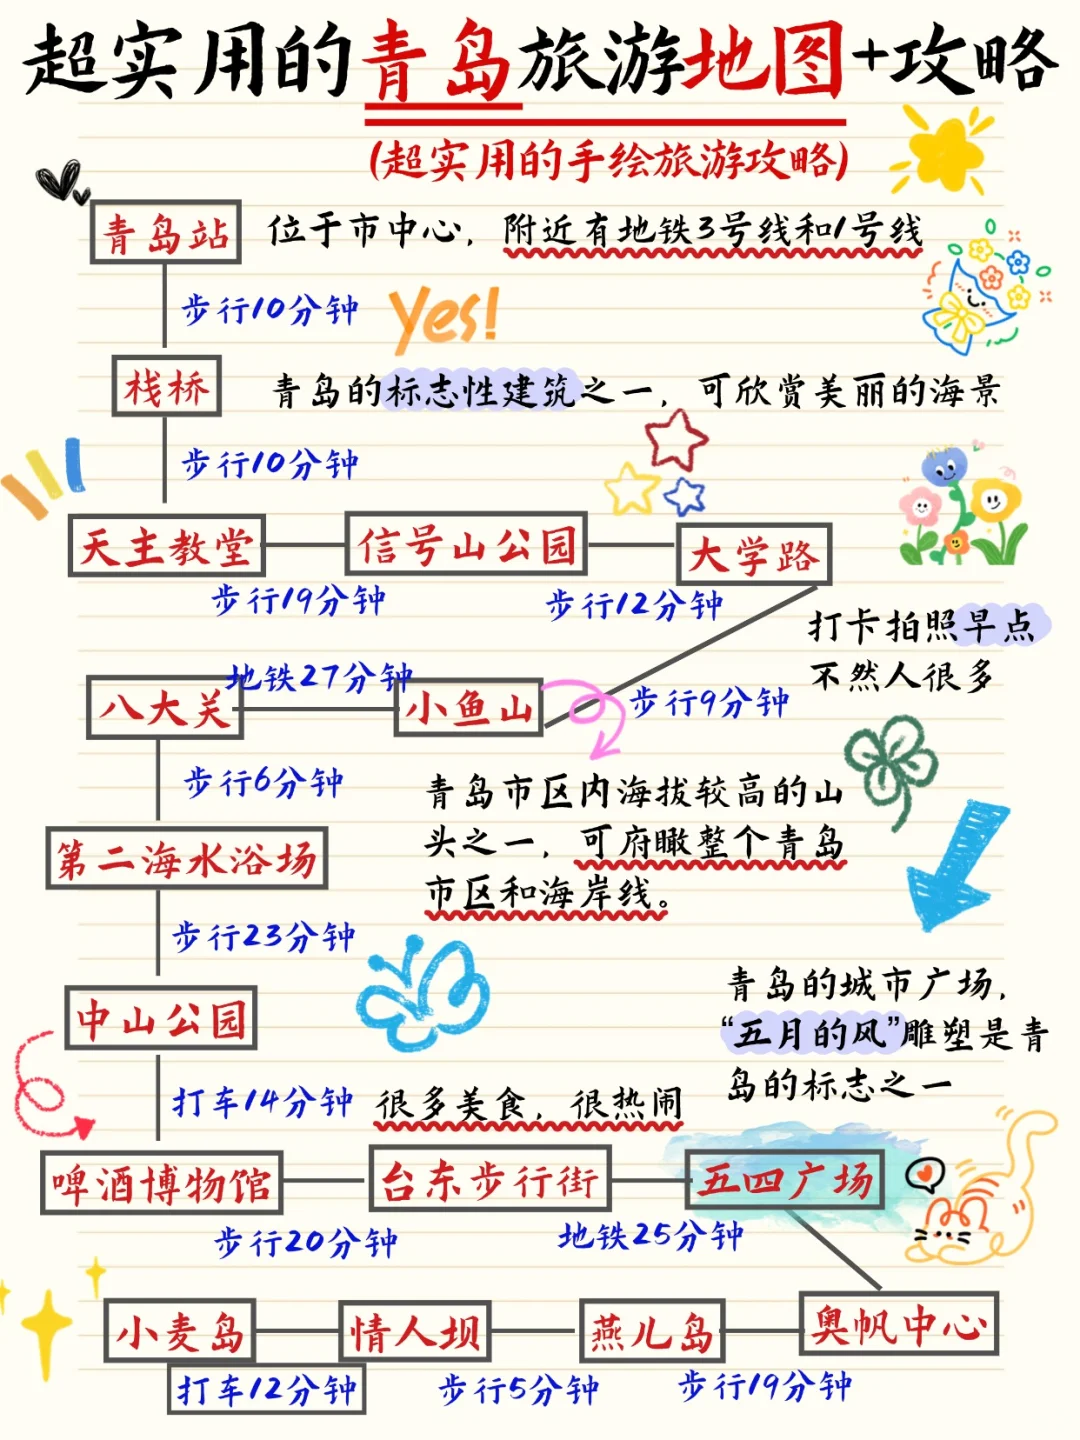 超实用的青岛旅游地图+攻略
(超实用的手绘旅游攻略)
青岛站
位于市中心，附近有地铁3号线和1号线
步行10分钟
yes!
栈桥
青岛的标志性建筑之一，可欣赏美丽的海景
步行10分钟
天主教堂
信号山公园
大学路
步行19分钟
步行12分钟
打卡拍照早点
不然人很多
地铁27分钟
八大关
小鱼山
步行9分钟
步行6分钟
青岛市区内海拔较高的山
头之一，可府瞰整个青岛
市区和海岸线。
第二海水浴场
步行23分钟
青岛的城市广场，
“五月的风”雕塑是青
岛的标志之一
中山公园
打车14分钟
很多美食，很热闹
啤酒博物馆
台东步行街
五四广场
步行20分钟
地铁25分钟
小麦岛
情人坝
燕儿岛
奥帆中心
打车12分钟
步行5分钟
步行19分钟